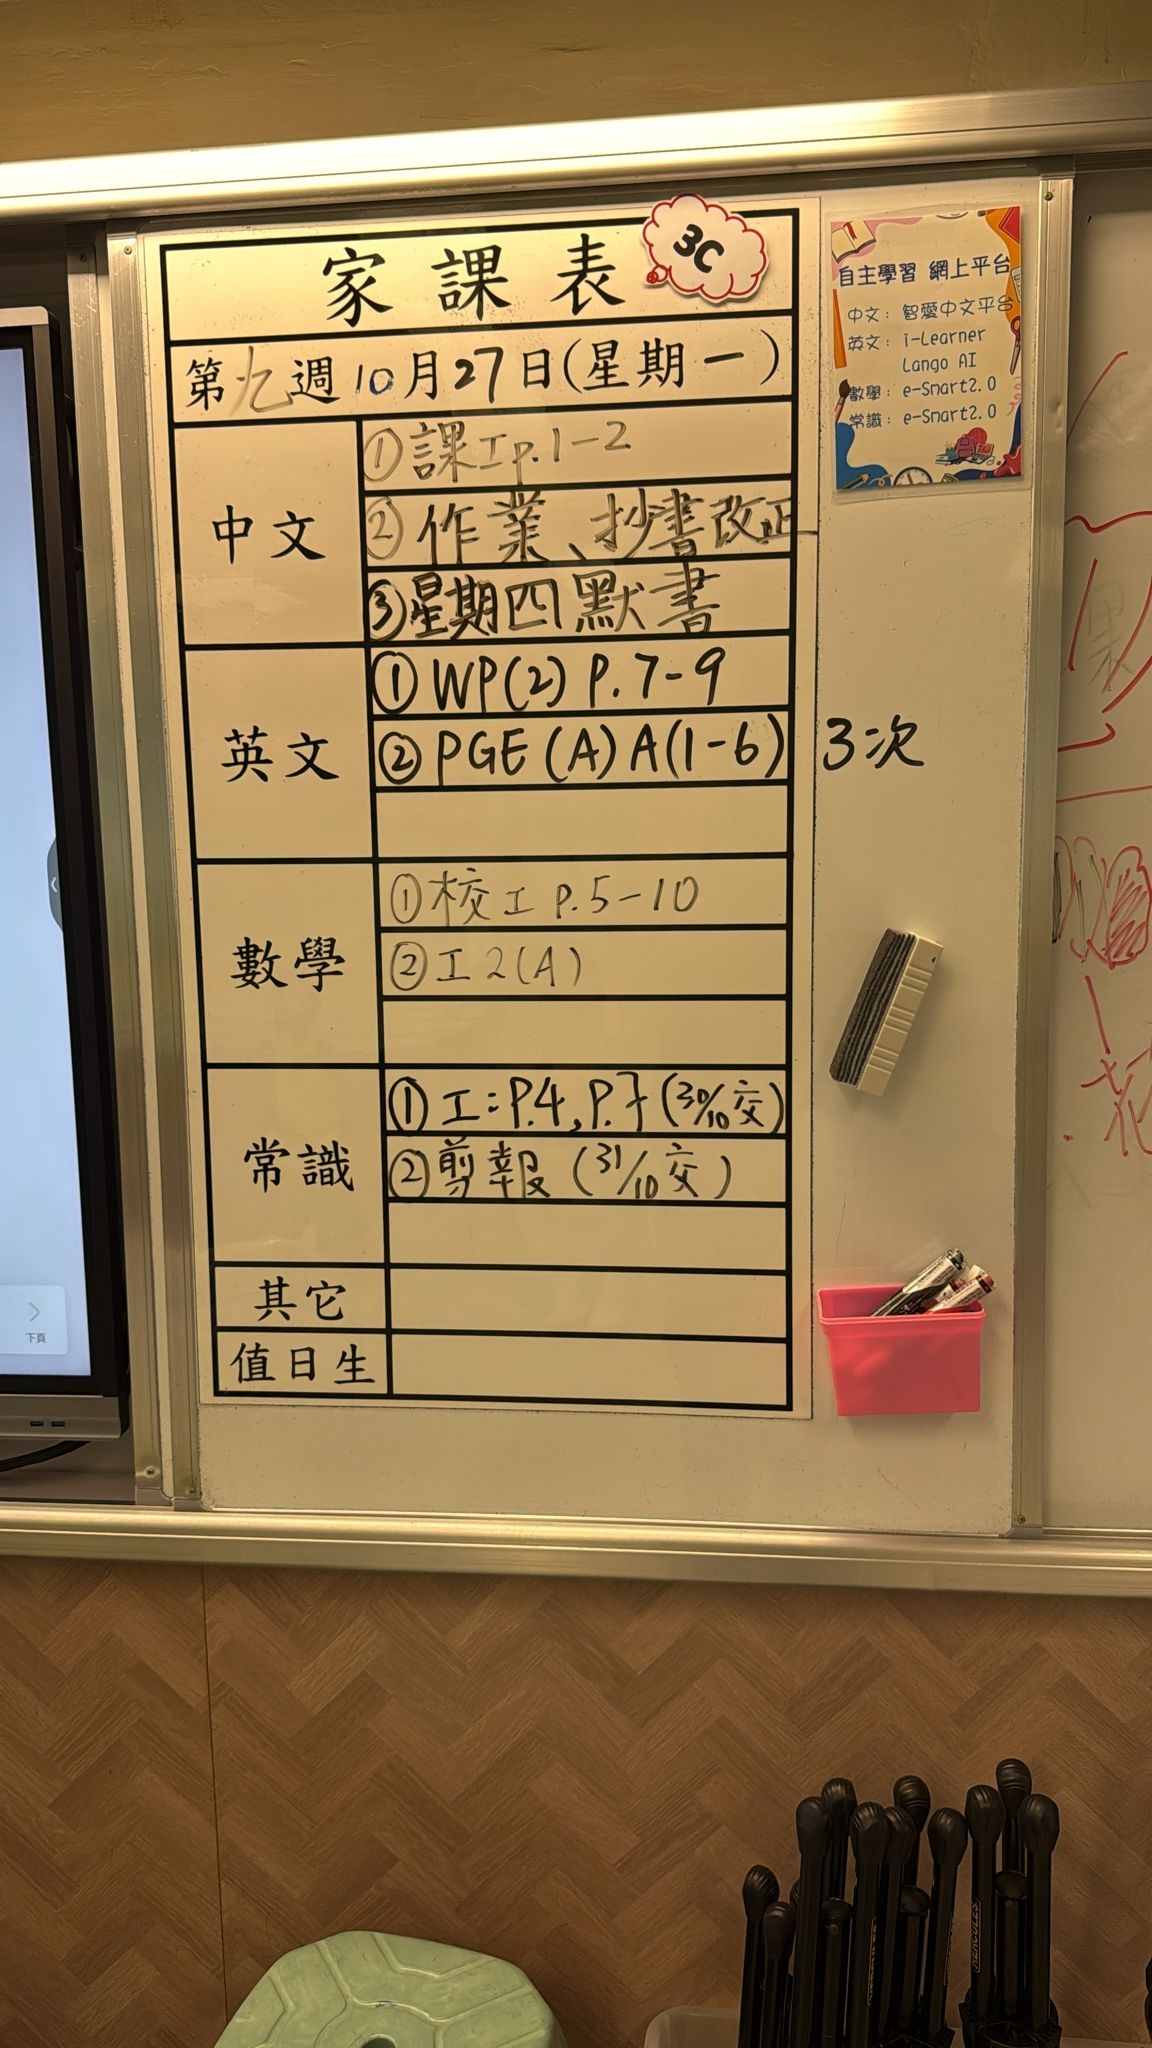 家課表
3C
第九週10月27日(星期一)
中文
①課工p.1-2
②作業、抄書改正
③星期四默書
英文
①WP(2) P.7-9
②PGE (A) A(1-6) 3次
數學
①校工 P.5-10
②工2(A)
常識
①工:P.4, P.7 (30/10交)
②剪報 (31/10交)
其它
值日生
自主學習 網上平台
中文:智愛中文平台
英文:i-Learner
Lango AI
數學:e-Smart2.0
常識:e-Smart2.0
下頁
花